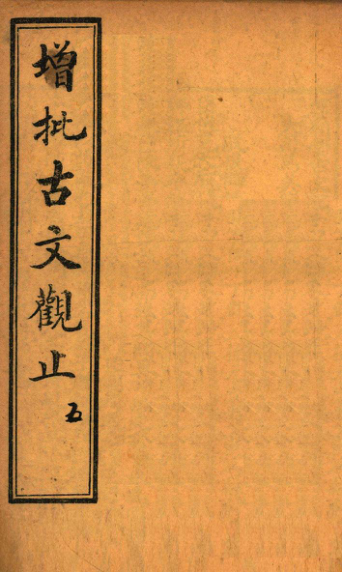 增批古文觀止 五